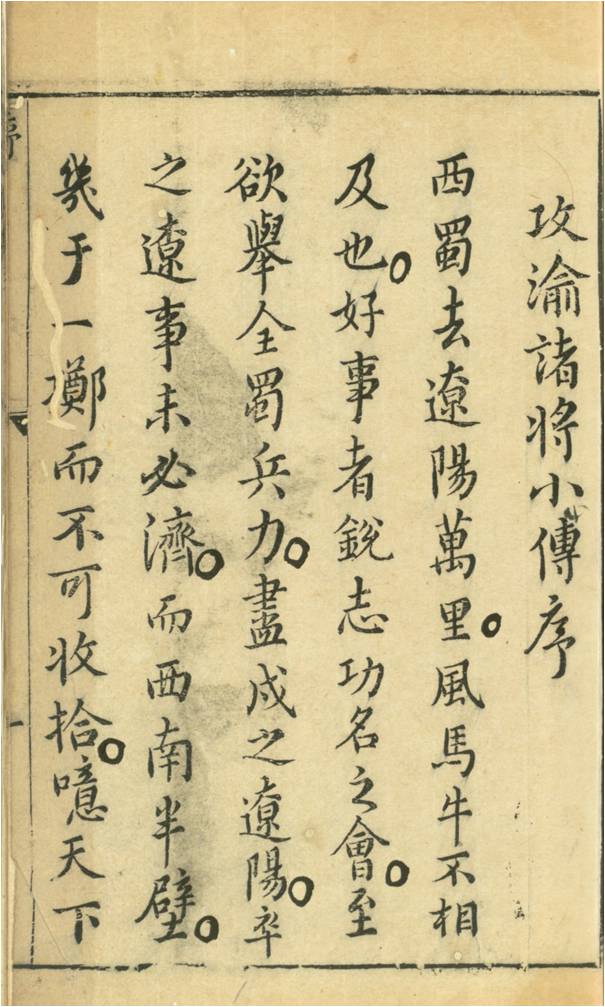 攻渝諸將小傳序
西蜀去遼陽萬里。風馬牛不相
及也。好事者銳志功名之會。至
欲舉全蜀兵力。盡戍之遼陽。卒
之遼事未必濟。而西南半壁。
幾于一擲而不可收拾。噫天下
序
一